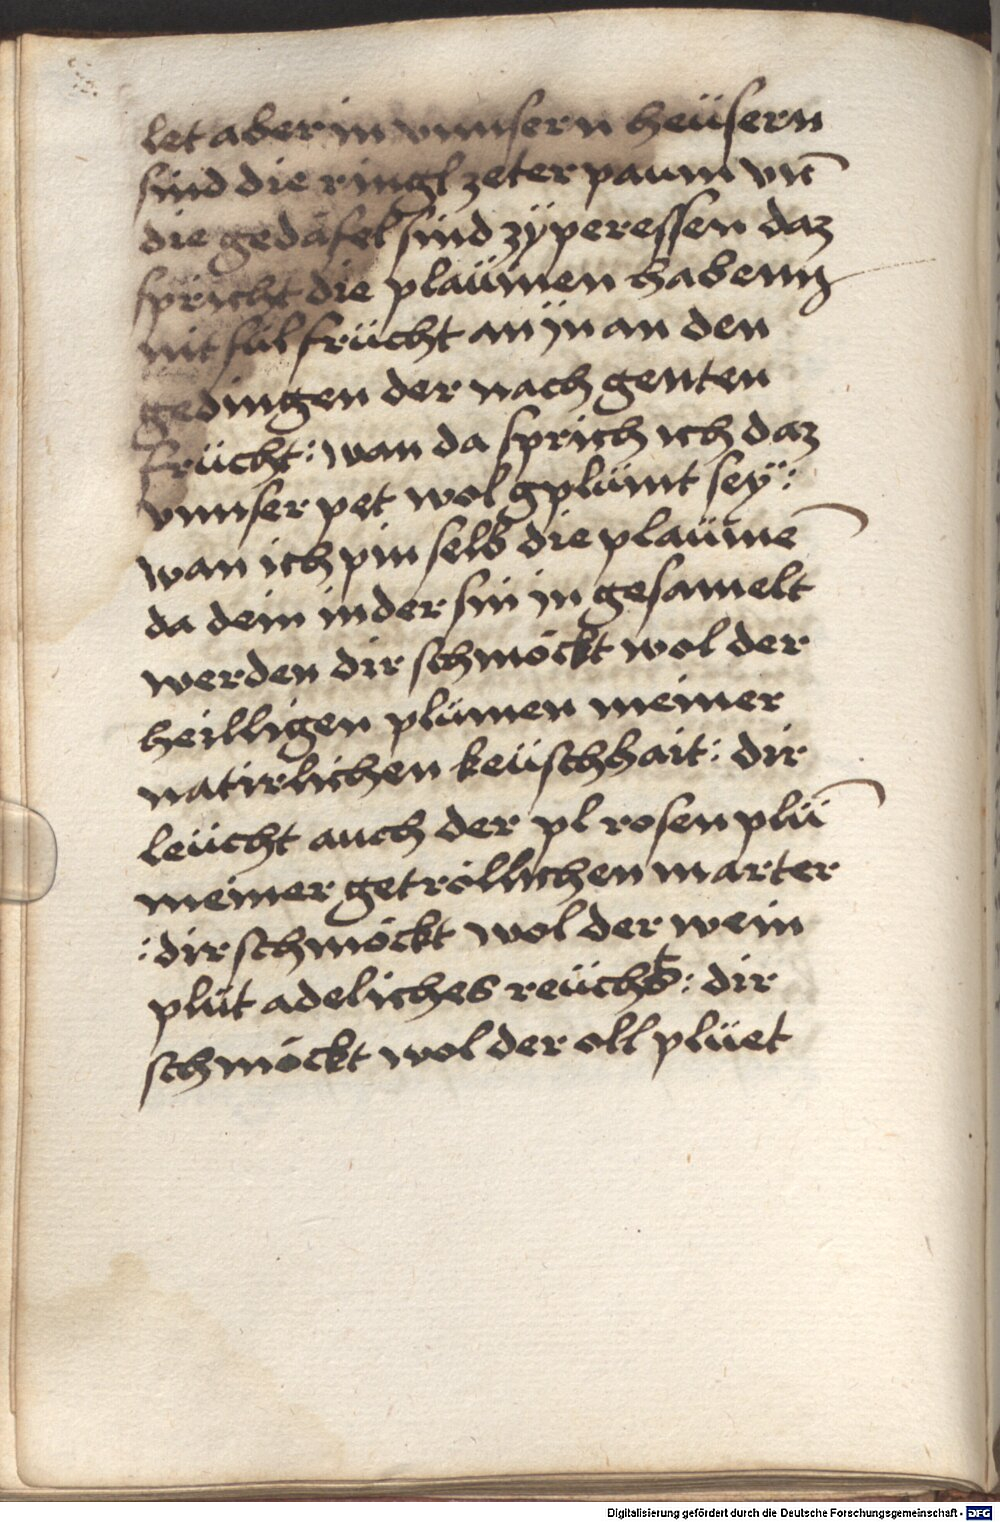 let aber in vnnsern heüsern
sind die ringl zeter paum vn̄
die gedäfel sind zÿperessen daz
spricht die plaümen habenn
nit fül frücht an jn an den
gedingen der nach genten
frücht: wan da sprich ich daz
vnnser pet wol gplümt seÿ:
wan ich pin selb die plaüme
da dein in der sin in gesamelt
werden dir schmöckt wol der
heilligen plümen meiner
natirlichen keüschhait: dir
leücht auch der pl rosen plü
meiner getröllichen marter
: dir schmöckt wol der wein
plüt adeliches reüchs: dir
schmöckt wol der oll plüet
Digitalisierung gefördert durch die Deutsche Forschungsgemeinschaft - DFG